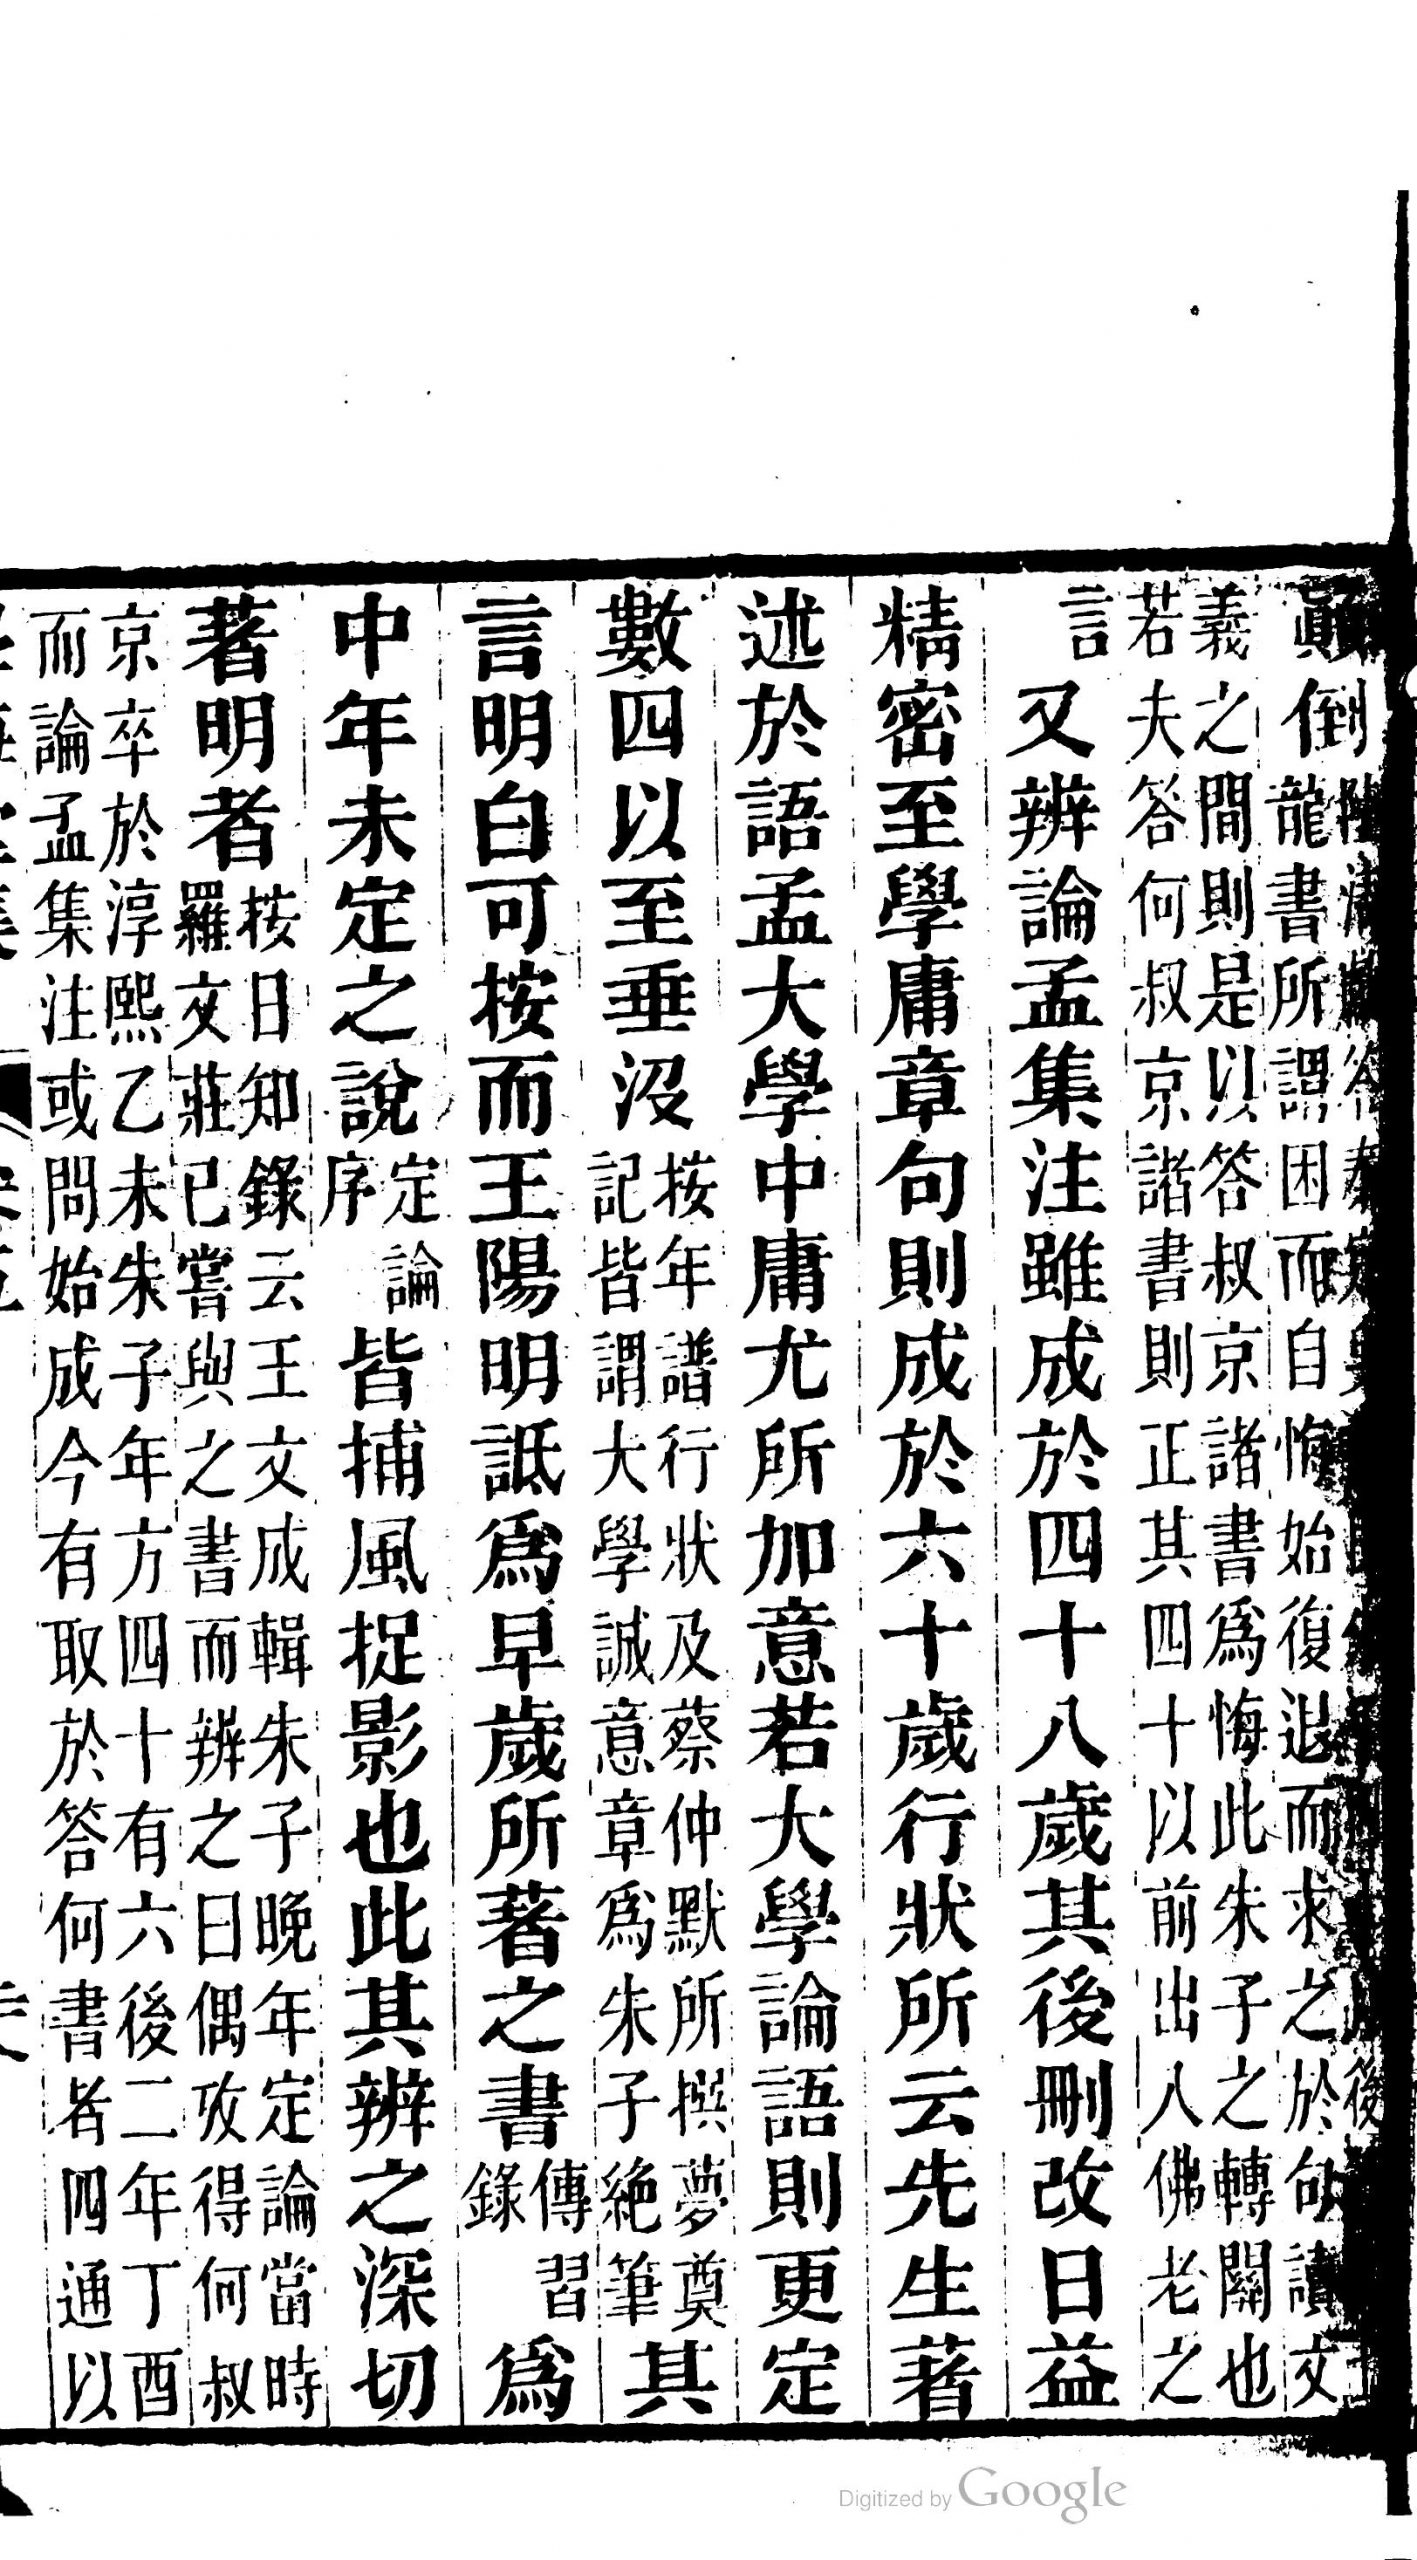 顛倒
龍書所謂困而自悔始復退而求之於句讀文
義之間則是以答叔京諸書爲悔此朱子之轉關也
若夫答何叔京諸書則正其四十以前出入佛老之
言
又辨論孟集注雖成於四十八歲其後刪改日益
精密至學庸章句則成於六十歲行狀所云先生著
述於語孟大學中庸尤所加意若大學論語則更定
數四以至垂沒
按年譜行狀及蔡仲默所撰夢奠
記皆謂大學誠意章爲朱子絶筆
其
言明白可按而王陽明詆爲早歲所著之書
傳習
錄
爲
中年未定之說
定論
序
皆捕風捉影也此其辨之深切
著明者
按日知錄云王文成輯朱子晩年定論當時
羅文莊已嘗與之書而辨之曰偶攷得何叔
京卒於淳熙乙未朱子年方四十有六後二年丁酉
而論孟集注或問始成今有取於答何書者四通以
Digitized by Google